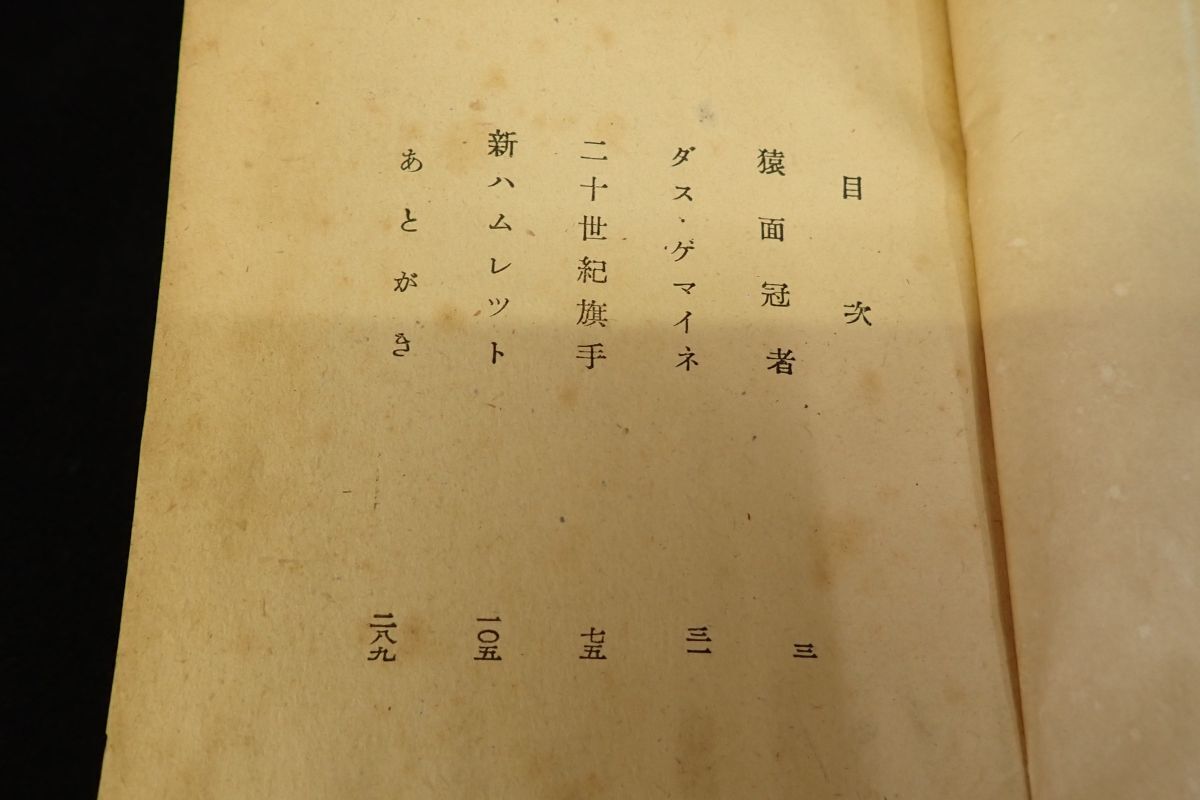 目次
猿面冠者 三
ダス・ゲマイネ 三一
二十世紀旗手 七五
新ハムレツト 一〇五
あとがき 二八九